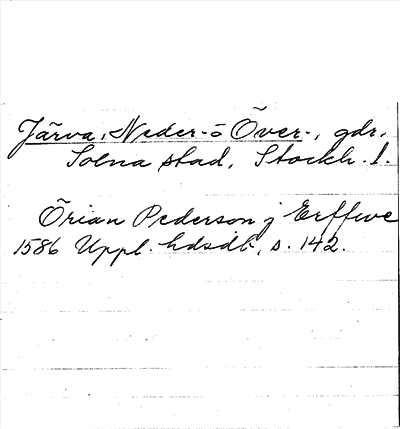 Järva, Neder- o Över-, gdr,
Solna stad, Stockh. l.
Örian Pederson j Erffwe
1586 Uppl. hdsdb, s. 142.